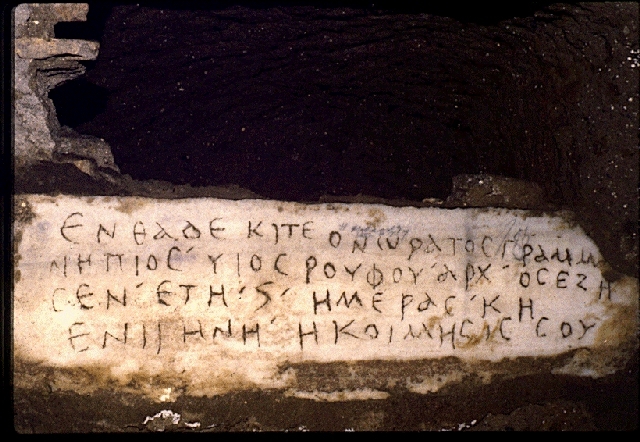 ΕΝΘΑΔΕ ΚΙΤΕ ΟΝωΡΑΤΟC ΓΡΑΜΜ
ΝΗΠΙΟC ΥΙΟC ΡΟΥΦΟΥ ΑΡΧ ΟC ΕΖΗ
CΕΝ ΕΤΗ S ΗΜΕΡΑC ΚΗ
ΕΝ ΙΡΗΝΗ Η ΚΟΙΜΗCΙC COY